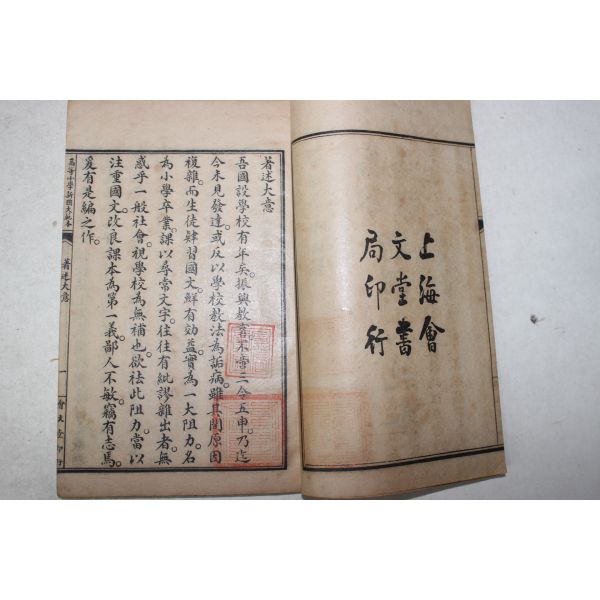 上海會
文堂書
局印行
著述大意
吾國設學校有年矣。振興教育不啻三令五申。乃迄
今未見發達。或反以學校教法為詬病。雖其間原因
複雜。而生徒肄習國文。鮮有効益。實為一大阻力。名
為小學卒業。課以尋常文字。往往有紕謬雜出者。無
惑乎一般社會。視學校為無補也。欲祛此阻力。當以
注重國文。改良課本為第一義。鄙人不敏。竊有志焉。
爰有是編之作。
高等小學新國文讀本
著述大意
一
會文堂印行